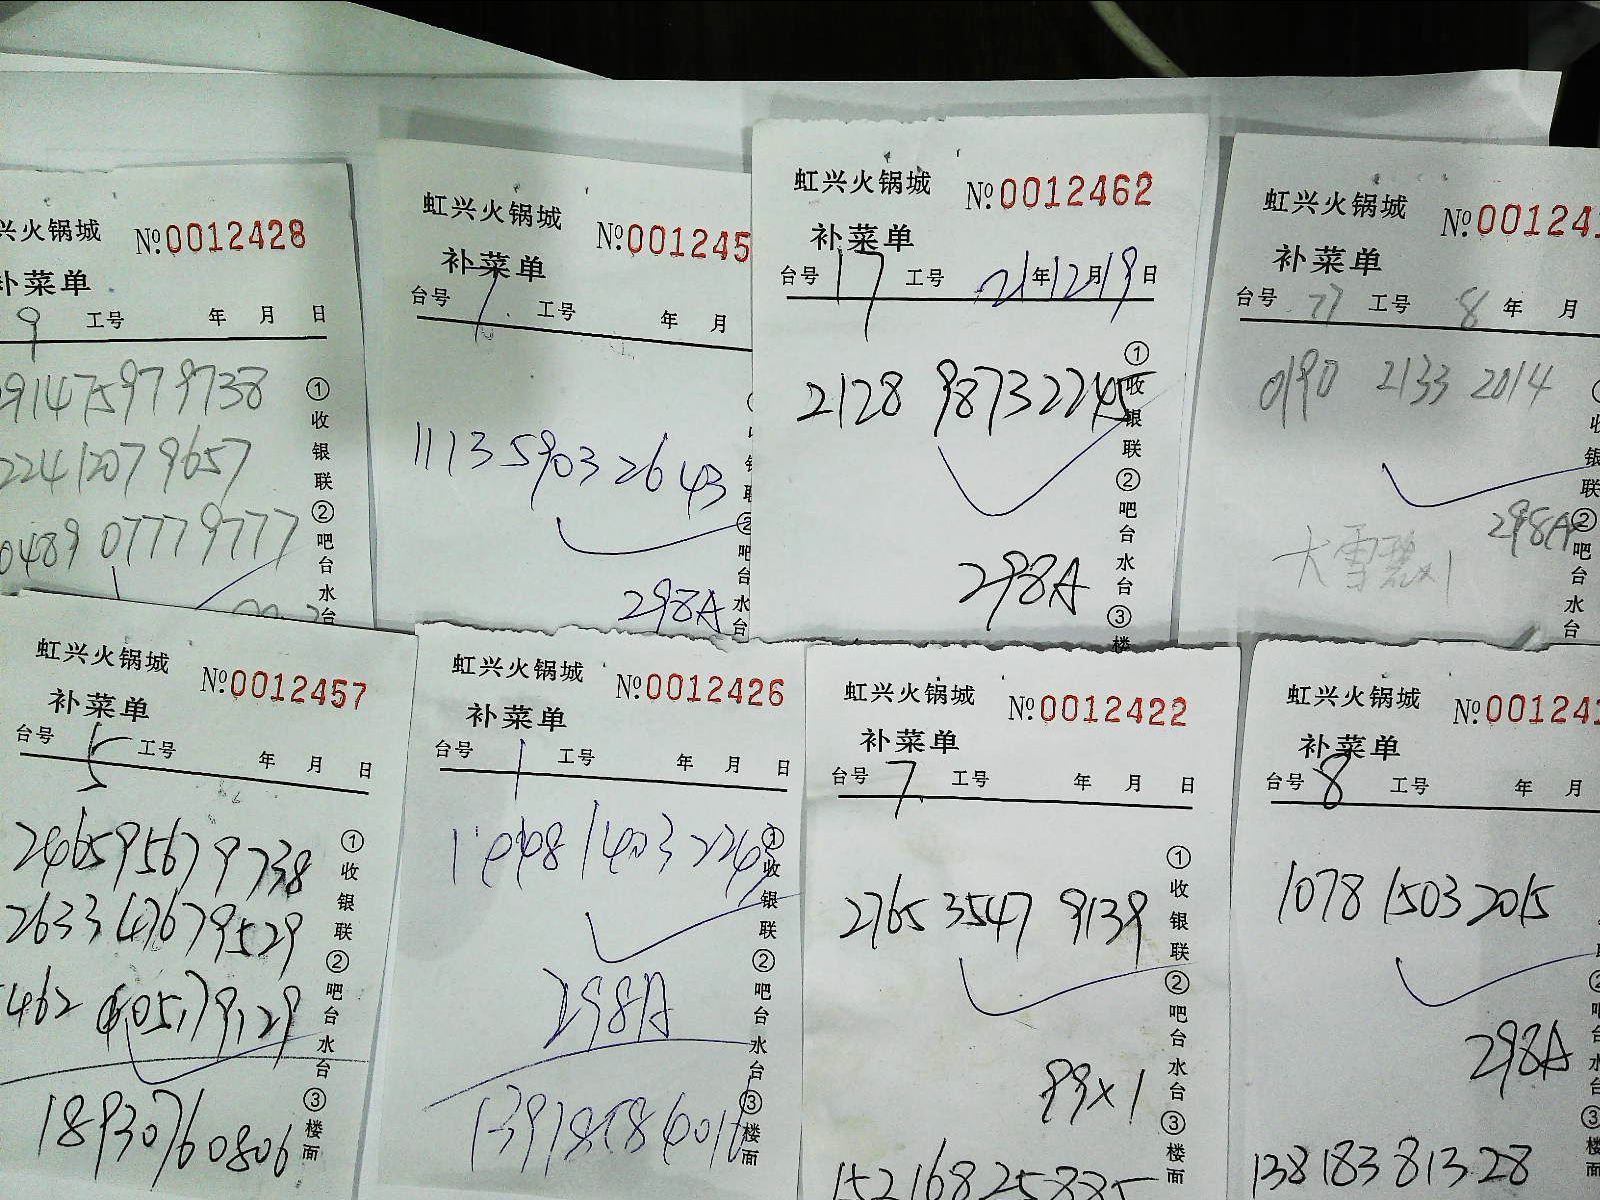 兴火锅城 No.0012428
补菜单
9 工号 年 月 日
91475979738
224120779657
0489 07779777
①收银联②吧台水台
虹兴火锅城 No.001245
补菜单
台号 7 工号 年 月
111359032643
298A
②吧台水台
虹兴火锅城 No.0012462
补菜单
台号 17 工号 21年12月19日
2128 98732245
298A
①收银联②吧台水台③楼
虹兴火锅城 No.001241
补菜单
台号 77 工号 8 年 月
0190 2133 2014
298A
大雪碧x1
②吧台水台
虹兴火锅城 No.0012457
补菜单
台号 5 工号 年 月 日
246595679738
263347679529
18930760806
①收银联②吧台水台③楼面
虹兴火锅城 No.0012426
补菜单
台号 1 工号 年 月 日
298A
①收银联②吧台水台③楼面
虹兴火锅城 No.0012422
补菜单
台号 7 工号 年 月 日
2765 3547 9139
99x1
15216825885
①收银联②吧台水台③楼面
虹兴火锅城 No.001241
补菜单
台号 8 工号 年 月
1078 1503 2015
298A
13818381328